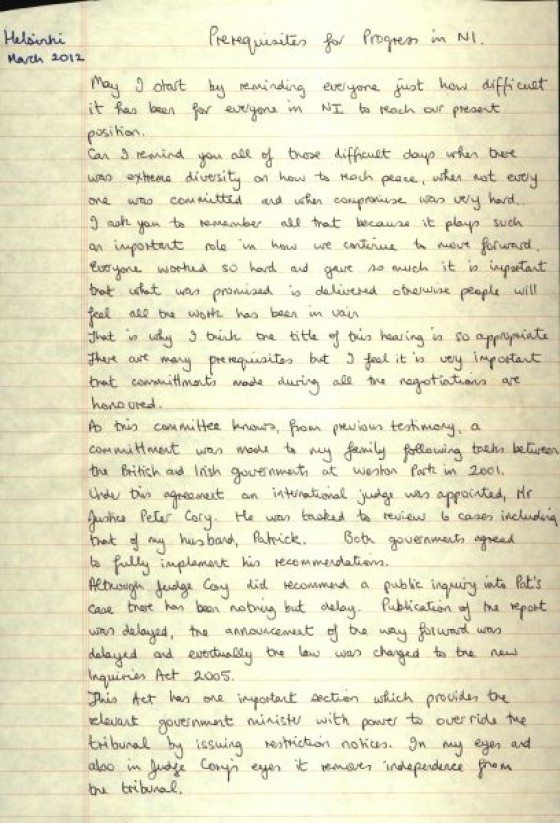 Helsinki
March 2012
Prerequisites for Progress in NI.
May I start by reminding everyone just how difficult
it has been for everyone in NI to reach our present
position.
Can I remind you all of those difficult days when there
was extreme diversity on how to reach peace, when not every
one was committed and when compromise was very hard.
I ask you to remember all that because it plays such
an important role in how we continue to move forward.
Everyone worked so hard and gave so much it is important
that what was promised is delivered otherwise people will
feel all the work has been in vain
That is why I think the title of this hearing is so appropriate
There are many prerequisites but I feel it is very important
that committments made during all the negotiations are
honoured.
As this committee knows, from previous testimony, a
committment was made to my family following talks between
the British and Irish governments at Weston Park in 2001.
Under this agreement an international judge was appointed, Mr
Justice Peter Cory. He was tasked to review 6 cases including
that of my husband, Patrick. Both governments agreed
to fully implement his recommendations.
Although Judge Cory did recommend a public inquiry into Pat's
case there has been nothing but delay. Publication of the report
was delayed, the announcement of the way forward was
delayed and eventually the law was changed to the new
Inquiries Act 2005.
This Act has one important section which provides the
relevant government minister with power to override the
tribunal by issuing restriction notices. In my eyes and
also in Judge Cory's eyes it removes independence from
the tribunal.